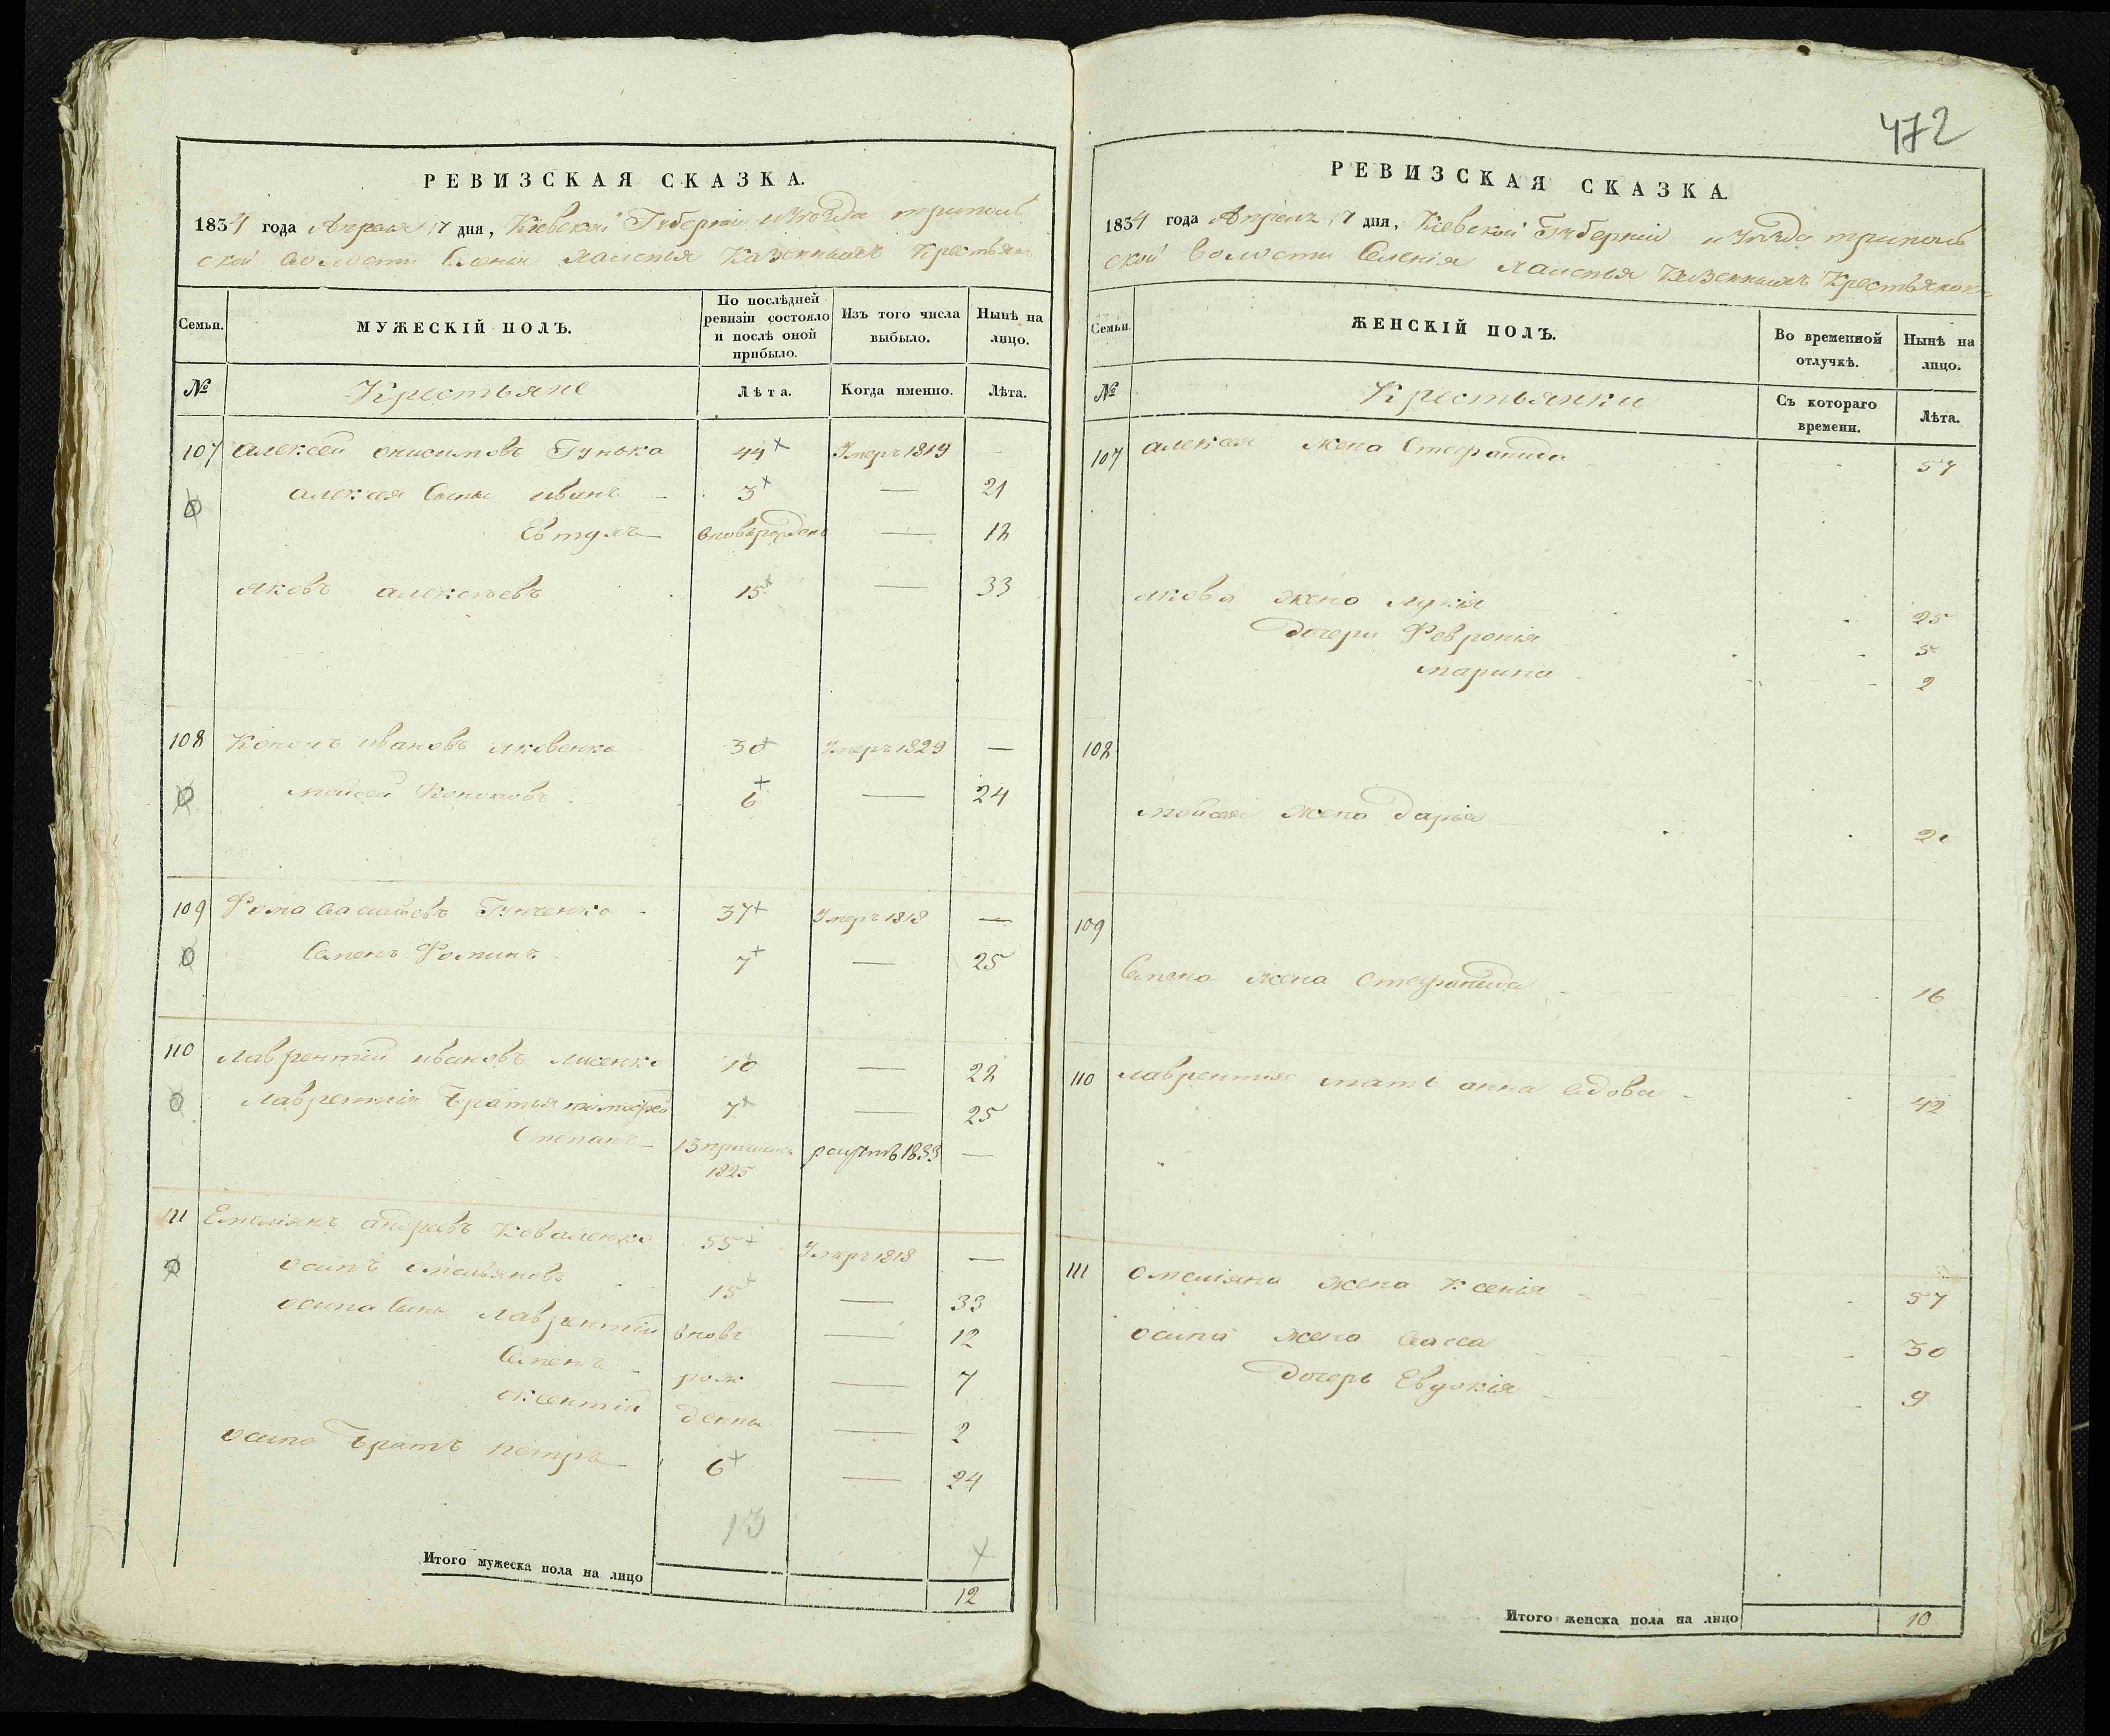 472
РЕВИЗСКАЯ СКАЗКА.
1834 года Апреля 17 дня, Кіевской Губерніи и Уѣзда триполь
ской волости Селенія Халепья Казенныхъ Крестьянъ
Семьи.
МУЖЕСКІЙ ПОЛЪ.
По послѣдней ревизіи состояло и послѣ оной прибыло.
Изъ того числа выбыло.
Нынѣ на лицо.
№
Крестьяне
Лѣта.
Когда именно.
Лѣта.
107 алексей онисимовъ Гунька 44 Умеръ 1819
алексея Сыны иванъ 3 — 21
Евтухъ вновьрожденъ — 12
яковъ алексѣевъ 15 — 33
108 Кононъ ивановъ яковенко 30 Умеръ 1829 —
мойсей Кононовъ 6 — 24
109 Фома васильевъ Гунченко 37 Умеръ 1818 —
Семенъ Фоминъ 7 — 25
110 лаврентій ивановъ лисенко 10 — 22
лаврентія братья тимофей 7 — 25
Степанъ 13 1825 1833 —
111 Емеліянъ андреевъ Коваленко 55 Умеръ 1818 —
осипъ омельяновъ 15 — 33
осипа Сыны лаврентій вновь — 12
Семенъ рож — 7
оксентій денны — 2
осипа братъ петръ 6 — 24
13
Итого мужеска пола на лицо
12
РЕВИЗСКАЯ СКАЗКА
1834 года Апреля 17 дня, Кіевской Губерніи и Уѣзда триполь
ской волости Селенія Халепья Казенныхъ Крестьянокъ
Семьи.
ЖЕНСКІЙ ПОЛЪ.
Во временной отлучкѣ.
Нынѣ на лицо.
№
Крестьянки
Съ котораго времени.
Лѣта.
107 алексея жена Стефанида 57
якова жена лукія 25
дочери Февронія 5
марина 2
108
мойсея жена дарья 21
109
Семена жена стефанида 16
110 лаврентія мать анна вдова 42
111 омеліяна жена Ксенія 57
осипа жена васса 30
дочерь Евдокія 9
Итого женска пола на лицо
10